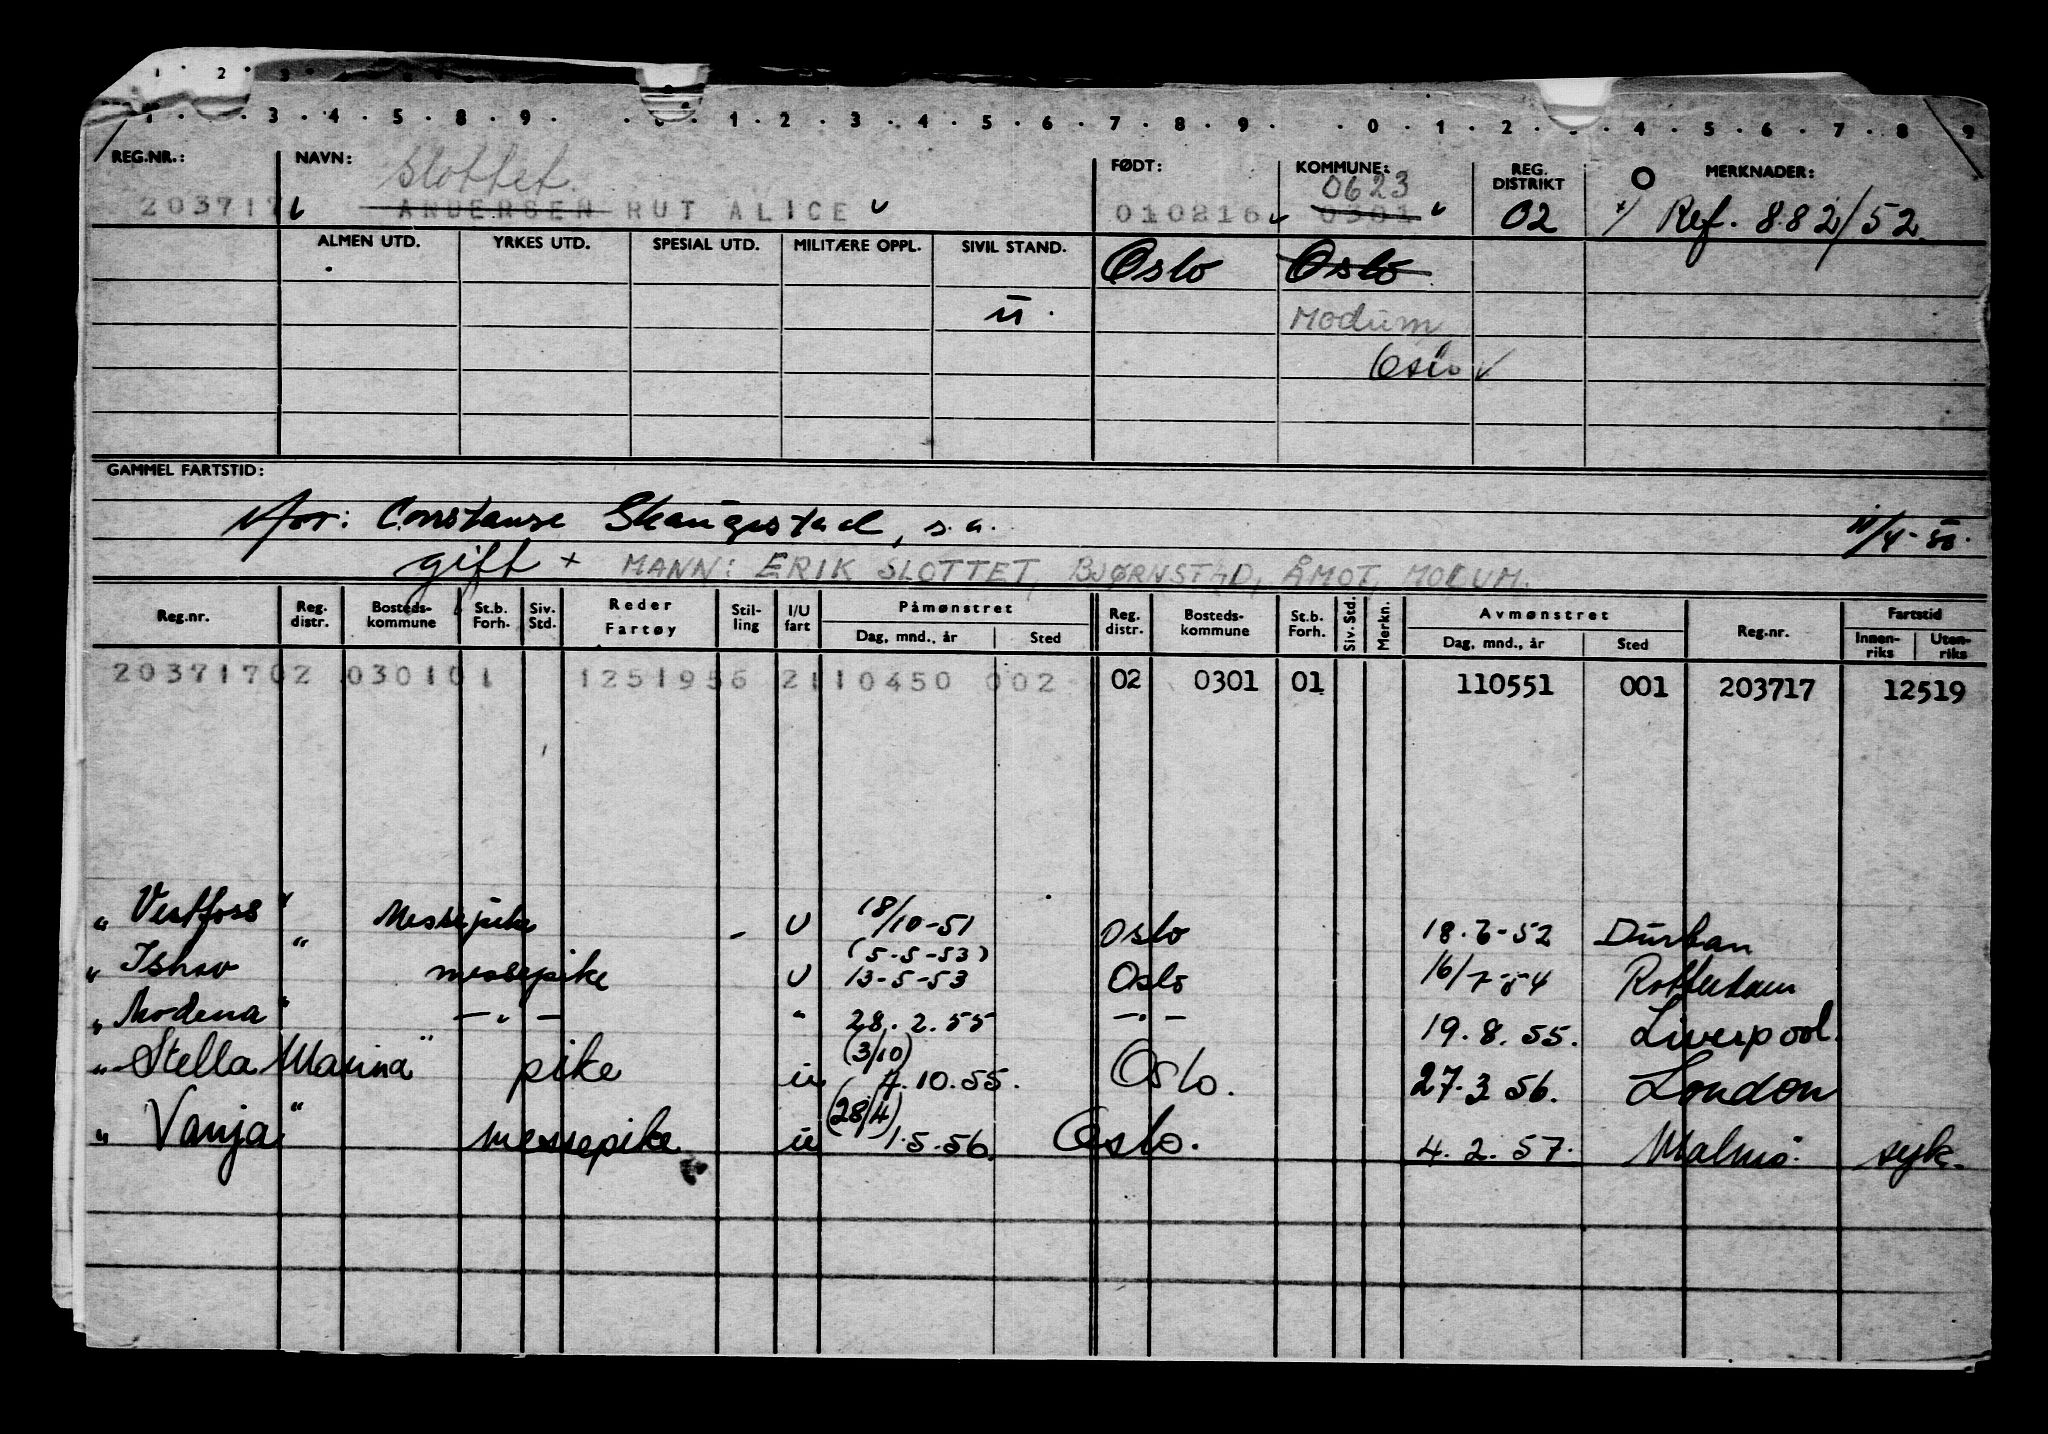 1 . 2 . 3
1 . . 3 . 4 . 5 . 8 . 9 . . 0 . 1 . 2 . 3 . 4 . 5 . 6 . 7 . 8 . 9 . . 0 . 1 . 2 . 3 . 4 . 5 . 6 . 7 . 8 . 9
REG.NR.: NAVN: Slottet FØDT: KOMMUNE: REG. DISTRIKT O MERKNADER:
0623
203717 ANDERSEN RUT ALICE 010216 0301 02 x/ Ref. 882/52
ALMEN UTD. YRKES UTD. SPESIAL UTD. MILITÆRE OPPL. SIVIL STAND. Oslo Oslo
u. Modum
Oslo ✓
GAMMEL FARTSTID:
Mor: Constanse Skaugestad, s.a. 11/4-50.
gift + MANN: ERIK SLOTTET, BJØRNSTAD, ÅMOT, MODUM.
Reg.nr. Reg. distr. Bosteds-kommune St.b. Forh. Siv. Std. Reder Fartøy Stil-ling I/U fart Påmønstret Reg. distr. Bosteds-kommune St.b. Forh. Siv. Std. Merkn. Avmønstret Reg.nr. Fartstid
Dag, mnd., år Sted Dag, mnd., år Sted Innen-riks Uten-riks
203717 02 0301 01 1251956 21 110450 002 02 0301 01 110551 001 203717 12519
"Vestfoss" Messepike - U 18/10-51 Oslo 18.6-52 Durban
(5-5-53)
"Ishav" messepike U 13-5-53 Oslo 16/7-54 Rotterdam
"Modena" -"- " 28.2.55 -"- 19.8.55. Liverpool.
(3/10)
"Stella Marina" pike u 4.10.55. Oslo. 27.3.56. London
(28/4)
"Vanja" messepike u 1.5.56. Oslo. 4.2.57. Malmö. syk.